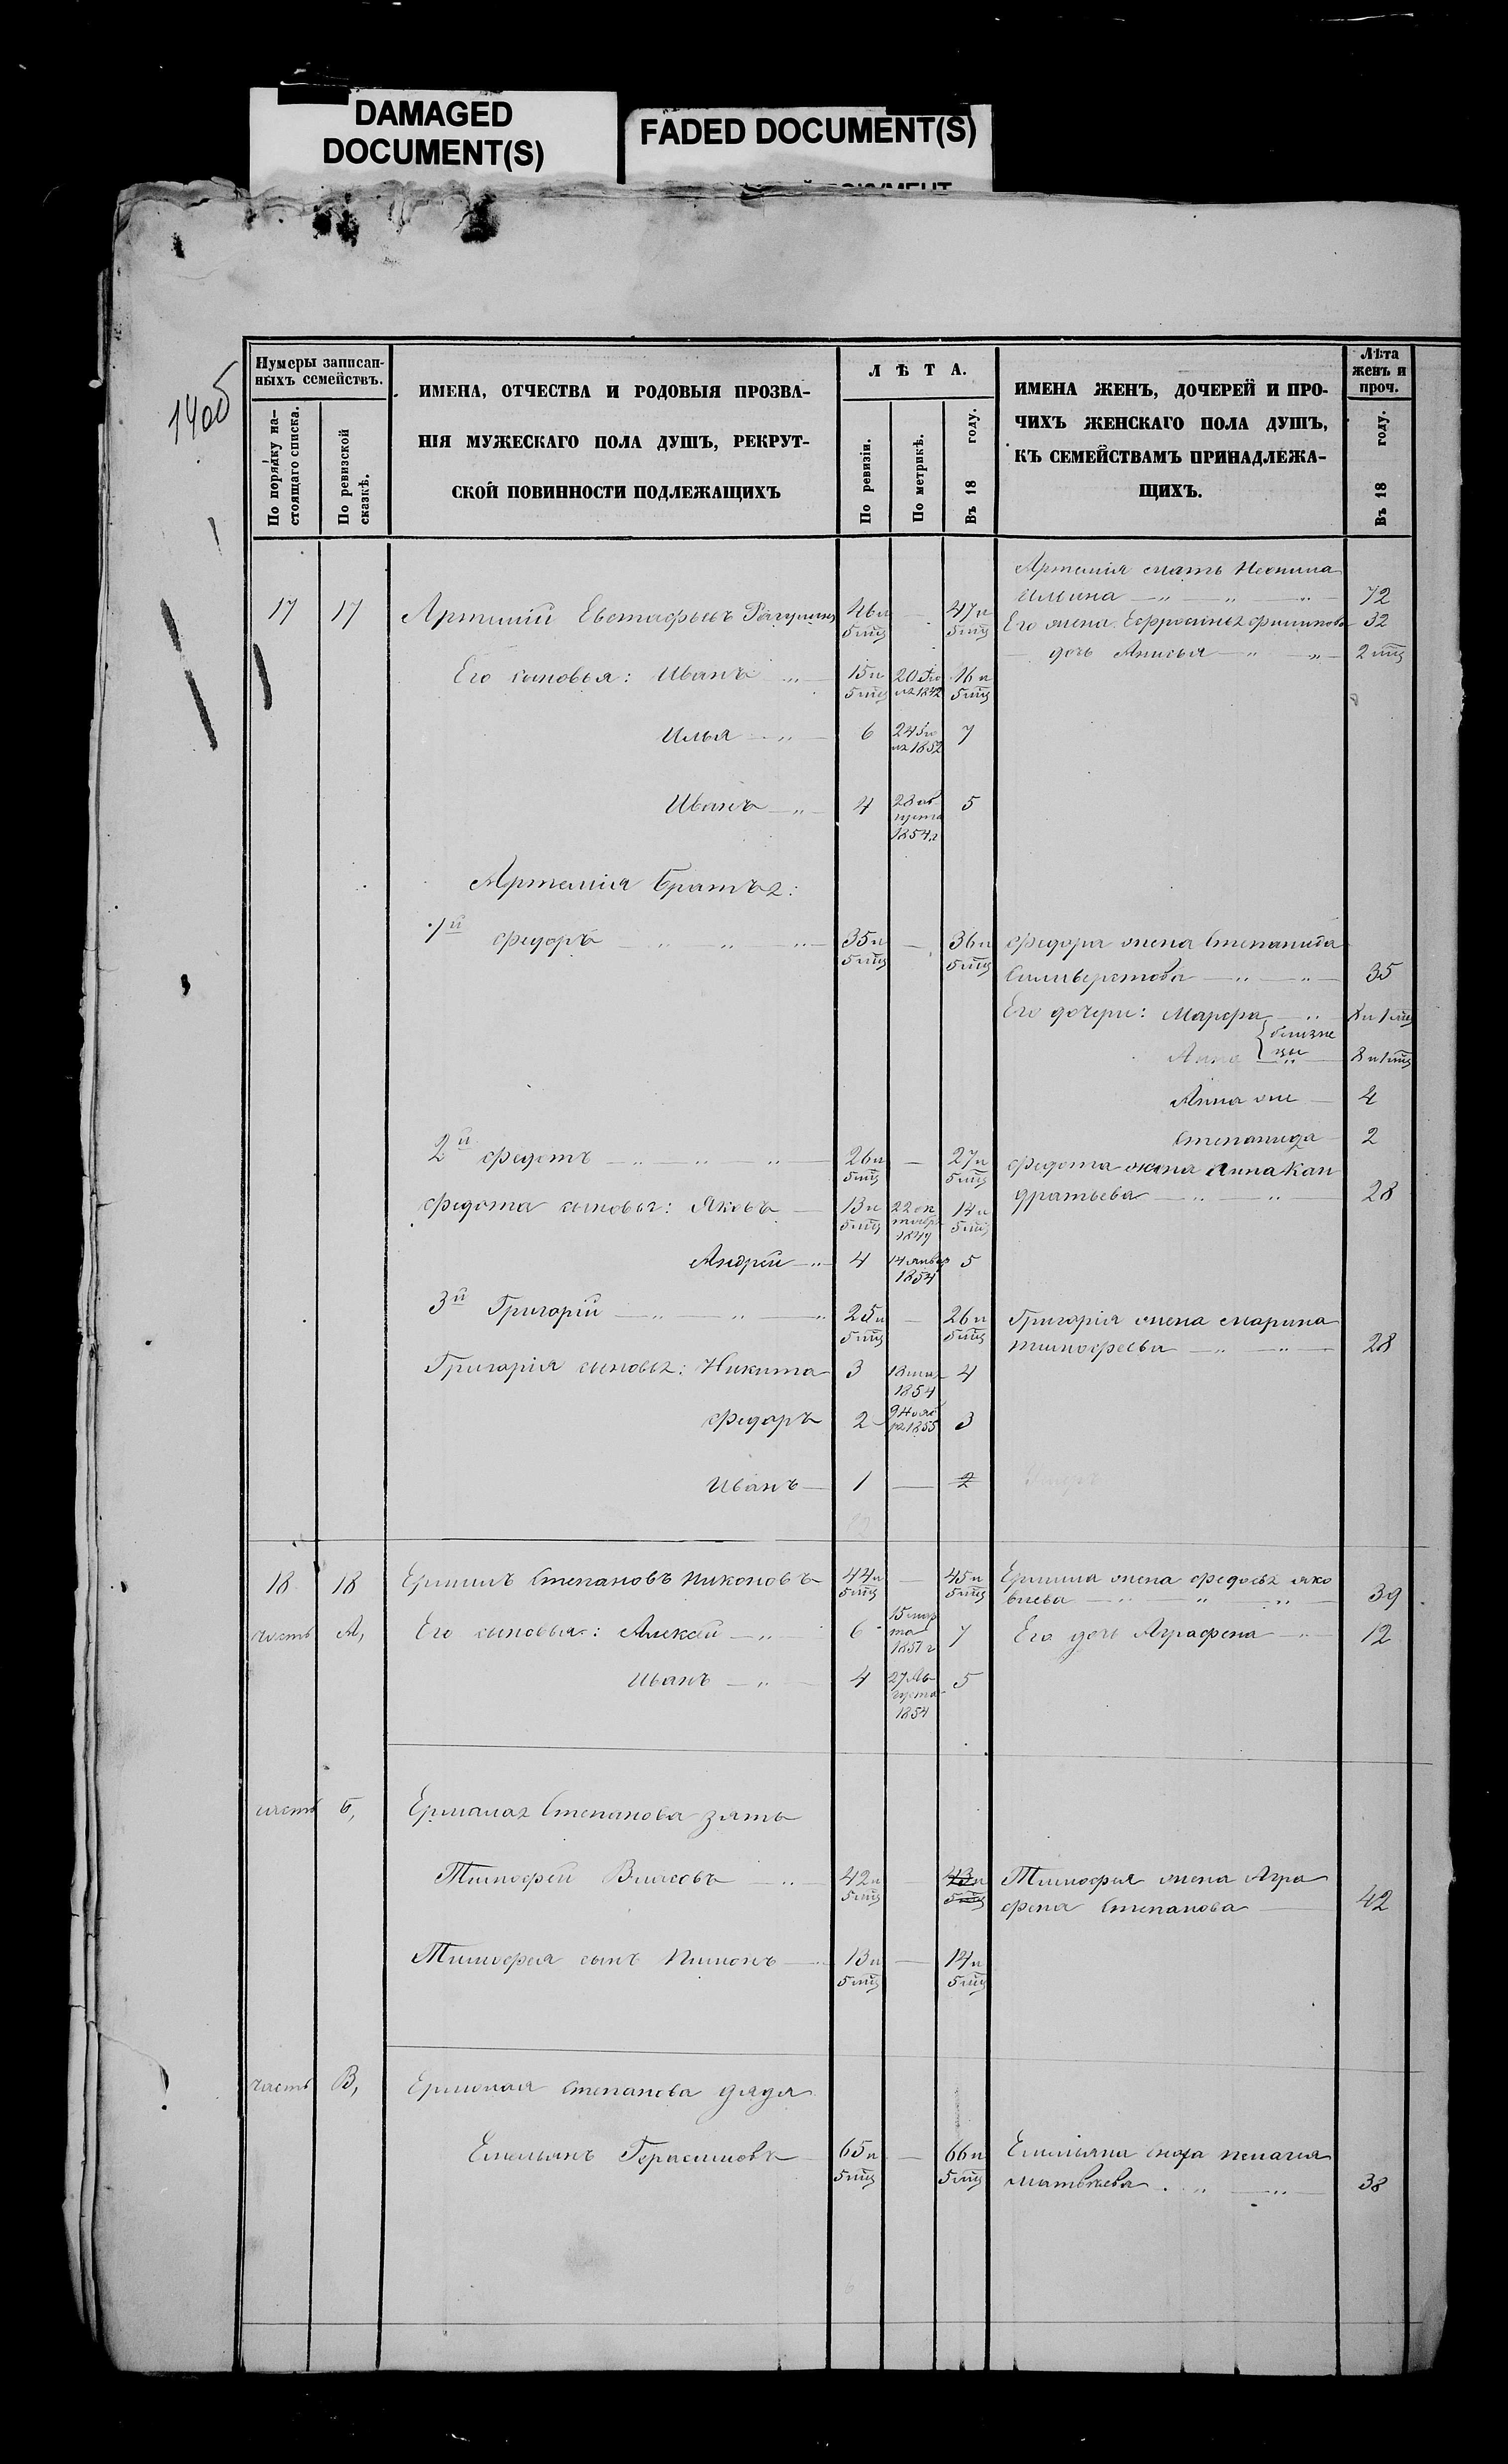 DAMAGED
DOCUMENT(S)
FADED DOCUMENT(S)
140об
Нумеры записан-
ныхъ семействъ.
По порядку на-
стоящаго списка.
По ревизской
сказкѣ.
ИМЕНА, ОТЧЕСТВА И РОДОВЫЯ ПРОЗВА-
НІЯ МУЖЕСКАГО ПОЛА ДУШЪ, РЕКРУТ-
СКОЙ ПОВИННОСТИ ПОДЛЕЖАЩИХЪ
ЛѢТА.
По ревизіи.
По метрикѣ.
Въ 18 году.
ИМЕНА ЖЕНЪ, ДОЧЕРЕЙ И ПРО-
ЧИХЪ ЖЕНСКАГО ПОЛА ДУШЪ,
КЪ СЕМЕЙСТВАМЪ ПРИНАДЛЕЖА-
ЩИХЪ.
Лѣта
женъ и
проч.
Въ 18 году.
Артемія мать
Ильина — „ — „ — 72
17 17 Артемій Евстафьевъ 46 и 5 мц — 47 и 5 мц Его жена 32
дочь Анисья — „ — „ — 2 мц
Его сыновья: Иванъ — „ — 15 и 5 мц 20 1842 16 и 5 мц
Илья — „ — 6 24 1852 7
Иванъ — „ — 4 28 августа 1854 г 5
Артемія братья:
1й Федоръ — „ — „ — „ — 35 и 5 мц — 36 и 5 мц Федора жена Степанида
Силиверстова — „ — „ — 35
Его дочери: Марфа — „ 8 и 1 мц
Анна близнецы 8 и 1 мц
Анна — 4
Степанида 2
2й Федотъ — „ — „ — „ — 26 и 5 мц — 27 и 5 мц Федота жена Анна Кан
дратьева — „ — „ — 28
Федота сыновья: Яковъ — 13 и 5 мц 22 октября 14 и 5 мц
Андрей — „ 4 14 января 1854 5
3й Григорій — „ — „ — „ 25 и 5 мц — 26 и 5 мц Григорія жена Марина
Тимофеева — „ — „ — 28
Григорія сыновья: Никита 3 18 1854 4
Федоръ 2 9 Нояб 1855 3
Иванъ — 1 — 2
18 18 Ермилъ Степановъ Никоновъ 44 и 5 мц — 45 и 5 мц Ермила жена Федосья Яко
влева — „ — „ — „ — 39
часть А, Его сыновья: Алексей — „ 6 15 марта 1851 г 7 Его дочь Аграфена — „ — 12
Иванъ — „ — 4 27 Августа 1854 5
часть Б, Степанова зять
Тимофей Власовъ — „ 42 и 5 мц — 43 и 5 мц Тимофея жена Агра
фена Степанова — 42
Тимофея сынъ Пименъ — 13 и 5 мц — 14 и 5 мц
часть В, Степанова дядя
Емельянъ Герасимовъ 65 и 5 мц — 66 и 5 мц Емельяна сноха Пелагия
Матвеева . „ — „ — 38